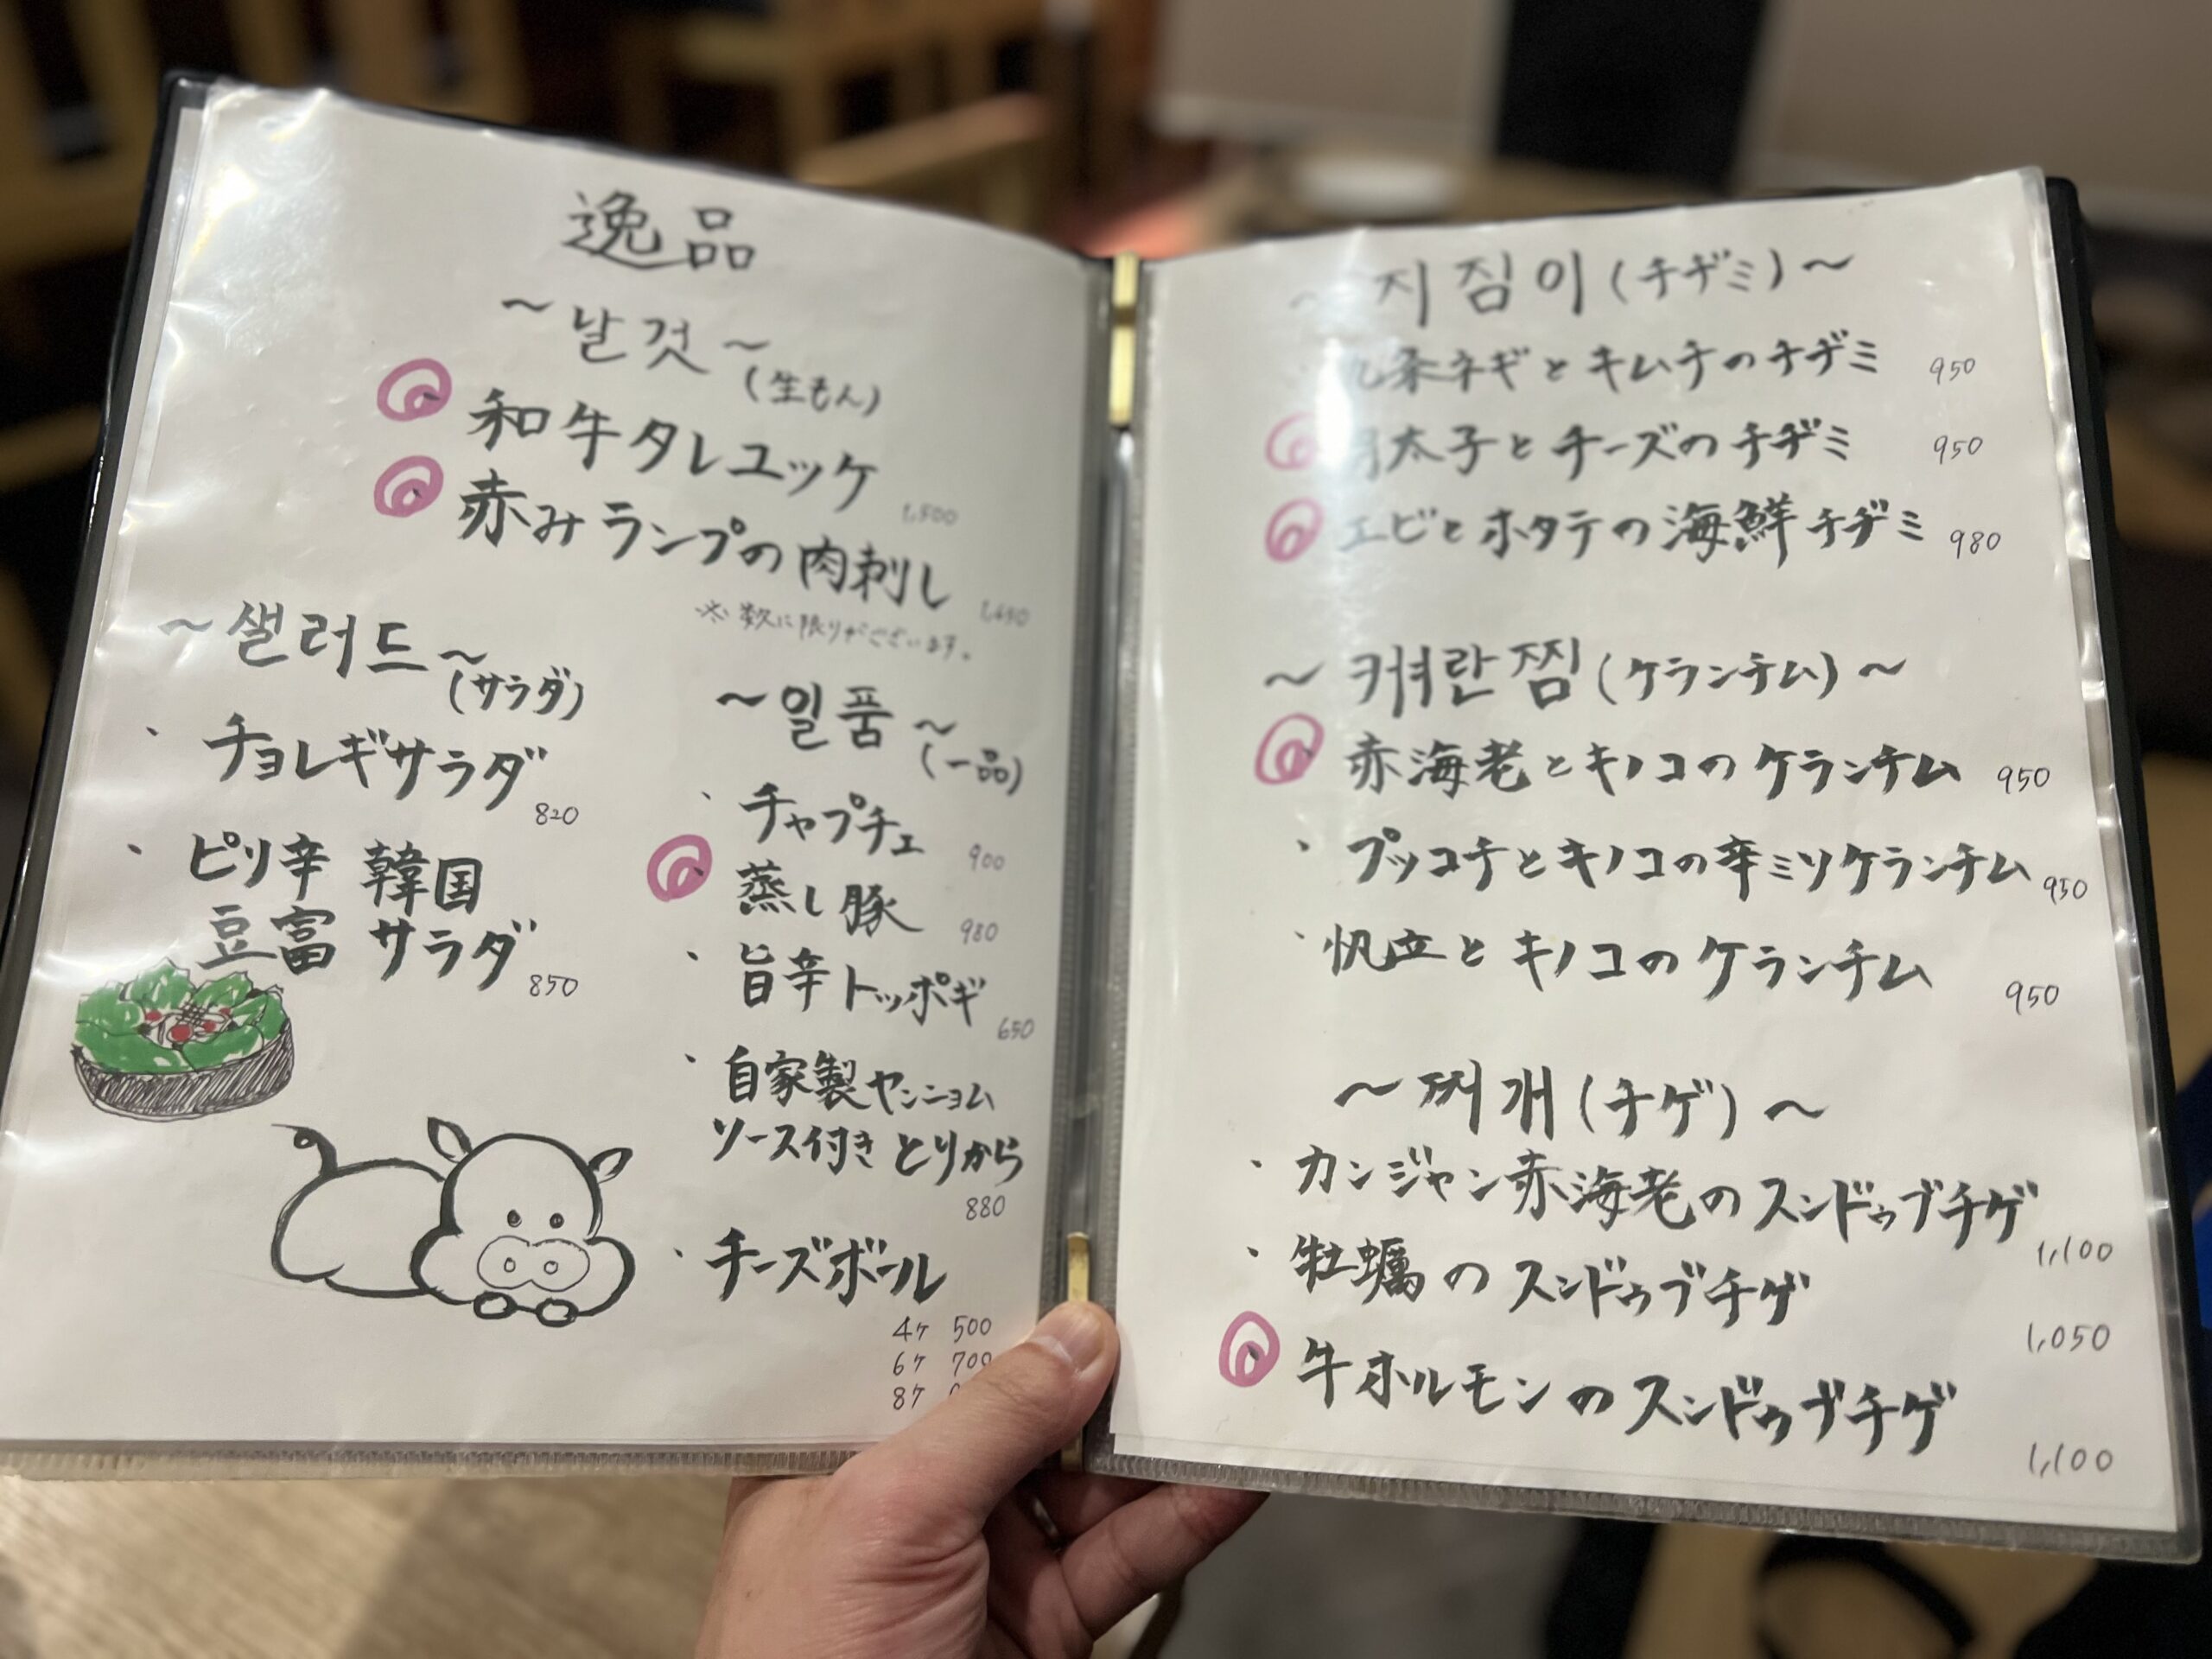 逸品
～날것～
(生もん)
和牛タレユッケ
1,500
赤みランプの肉刺し
※数に限りがございます。
～샐러드～
(サラダ)
・チョレギサラダ
820
・ピリ辛 韓国
豆富 サラダ
850
～일품～
(一品)
・チャプチェ 900
蒸し豚 980
・旨辛トッポギ 650
・自家製ヤンニョム
ソース付きとりから
880
・チーズボール
4ヶ 500
6ヶ 700
8ヶ
～지짐이(チヂミ)～
九条ネギとキムチのチヂミ 950
明太子とチーズのチヂミ 950
エビとホタテの海鮮チヂミ 980
～켜란찜(ケランチム)～
赤海老とキノコのケランチム 950
・プッコチとキノコの辛ミソケランチム 950
・帆立とキノコのケランチム 950
～찌개(チゲ)～
・カンジャン赤海老のスンドゥブチゲ 1,100
・牡蠣のスンドゥブチゲ 1,050
牛ホルモンのスンドゥブチゲ 1,100